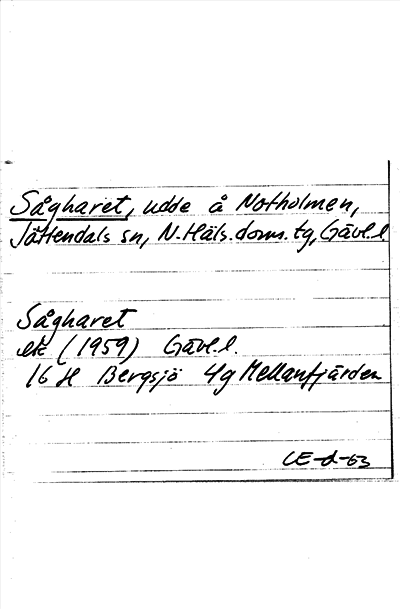 Sågharet, udde å Notholmen,
Jättendals sn, N. Häls. doms. tg, Gävl. l
Sågharet
ek (1959) Gävl. l.
16 H Bergsjö 4g Mellanfjärden
CE-d-63